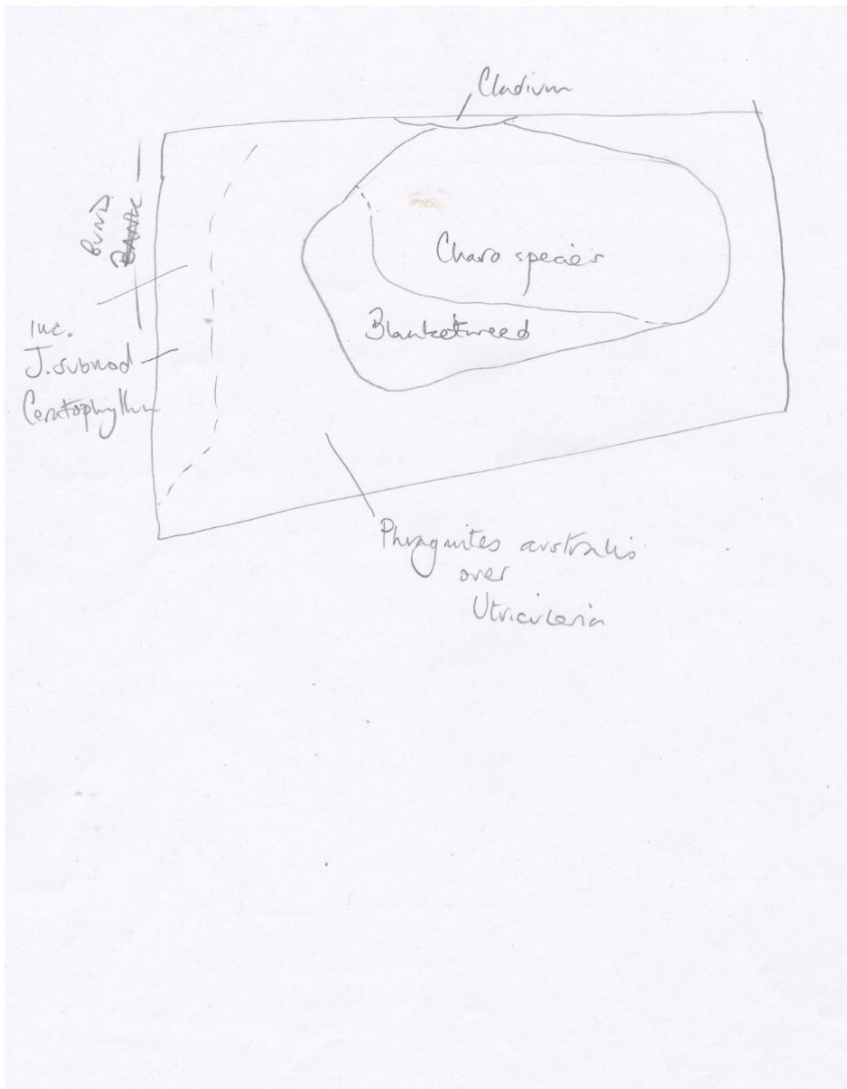 Cladium
BUND
BANK
Chara species
Blanketweed
Inc.
J. subnod
Ceratophyllum
Phragmites australis
over
Utricularia